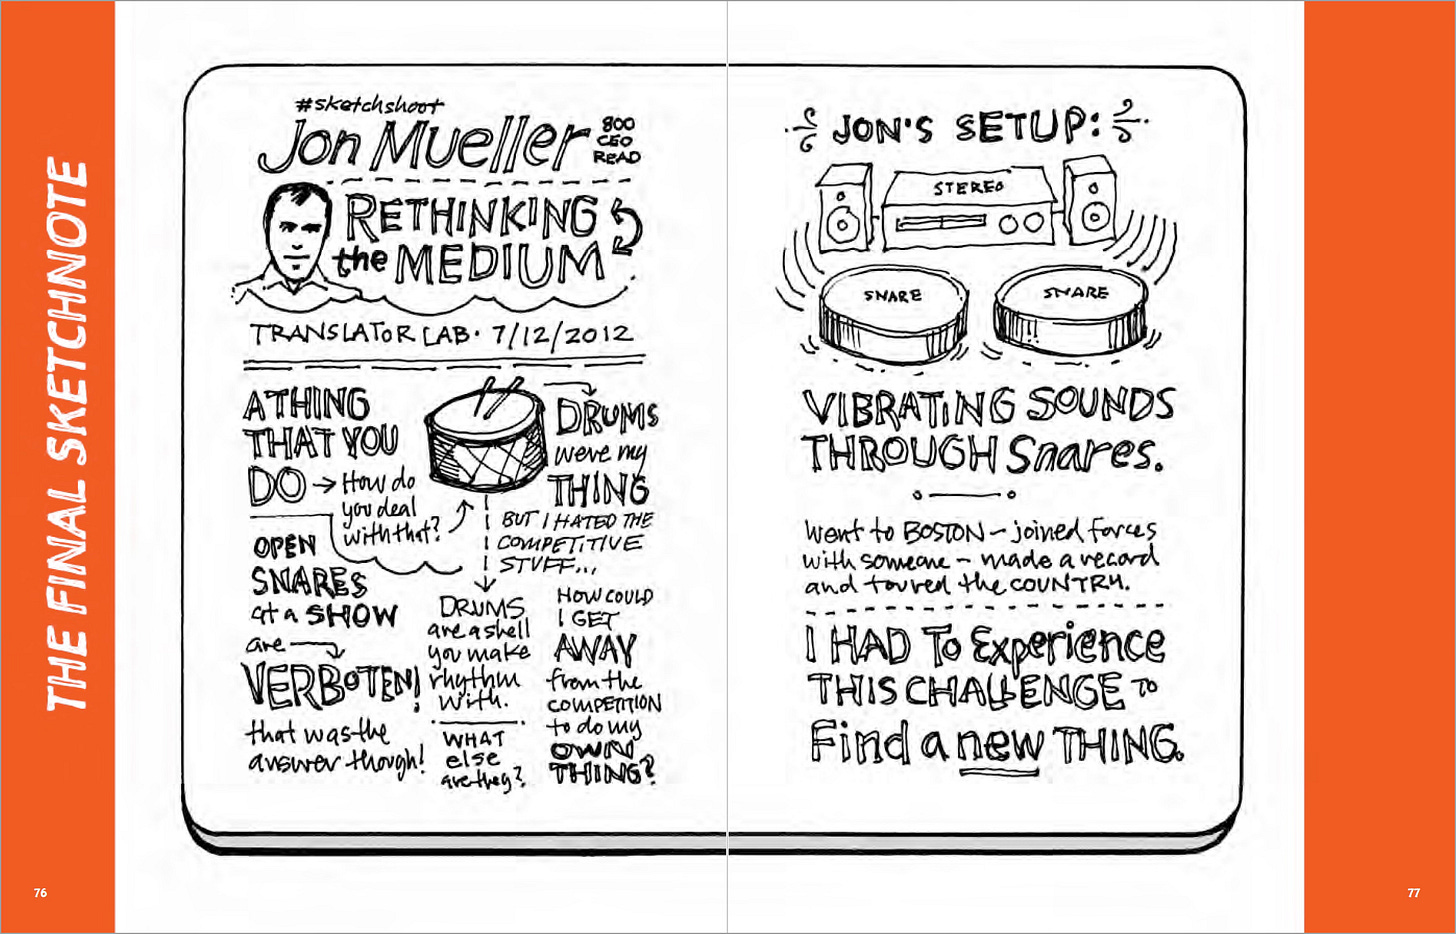 THE FINAL SKETCHNOTE
#sketchshoot
Jon Mueller
800
CEO
READ
RETHINKING
the MEDIUM
TRANSLATOR LAB · 7/12/2012
A THING
THAT YOU
DO → How do
you deal
with that?
DRUMS
were my
THING
BUT I HATED THE
COMPETITIVE
STUFF...
OPEN
SNARES
at a SHOW
are
VERBOTEN!
that was the
answer though!
DRUMS
are a shell
you make
rhythm
with.
WHAT
else
are they?
HOW COULD
I GET
AWAY
from the
COMPETITION
to do my
OWN
THING?
76
JON'S SETUP:
STEREO
SNARE
SNARE
VIBRATING SOUNDS
THROUGH Snares.
Went to BOSTON – joined forces
with someone – made a record
and toured the COUNTRY.
I HAD To Experience
THIS CHALLENGE TO
Find a new THING.
77